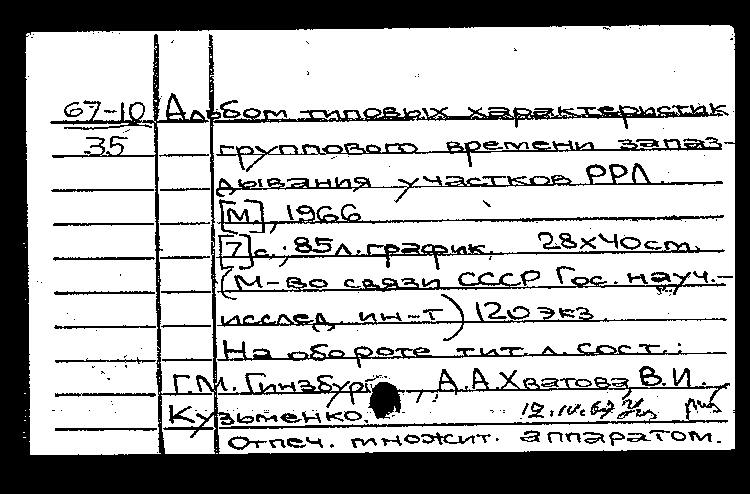 67-10 Альбом типовых характеристик
35 группового времени запаз-
дывания участков РРЛ
[М], 1966
[7]с.; 85л.график. 28х40cm.
(М-во связи СССР Гос. науч.-
исслед. ин-т) 120 экз.
На обороте тит. л. сост.:
Г.М. Гинзбург, А.А Хватова, В.И.
Кузьменко. 12.IV.67
Отпеч. множит. аппаратом.